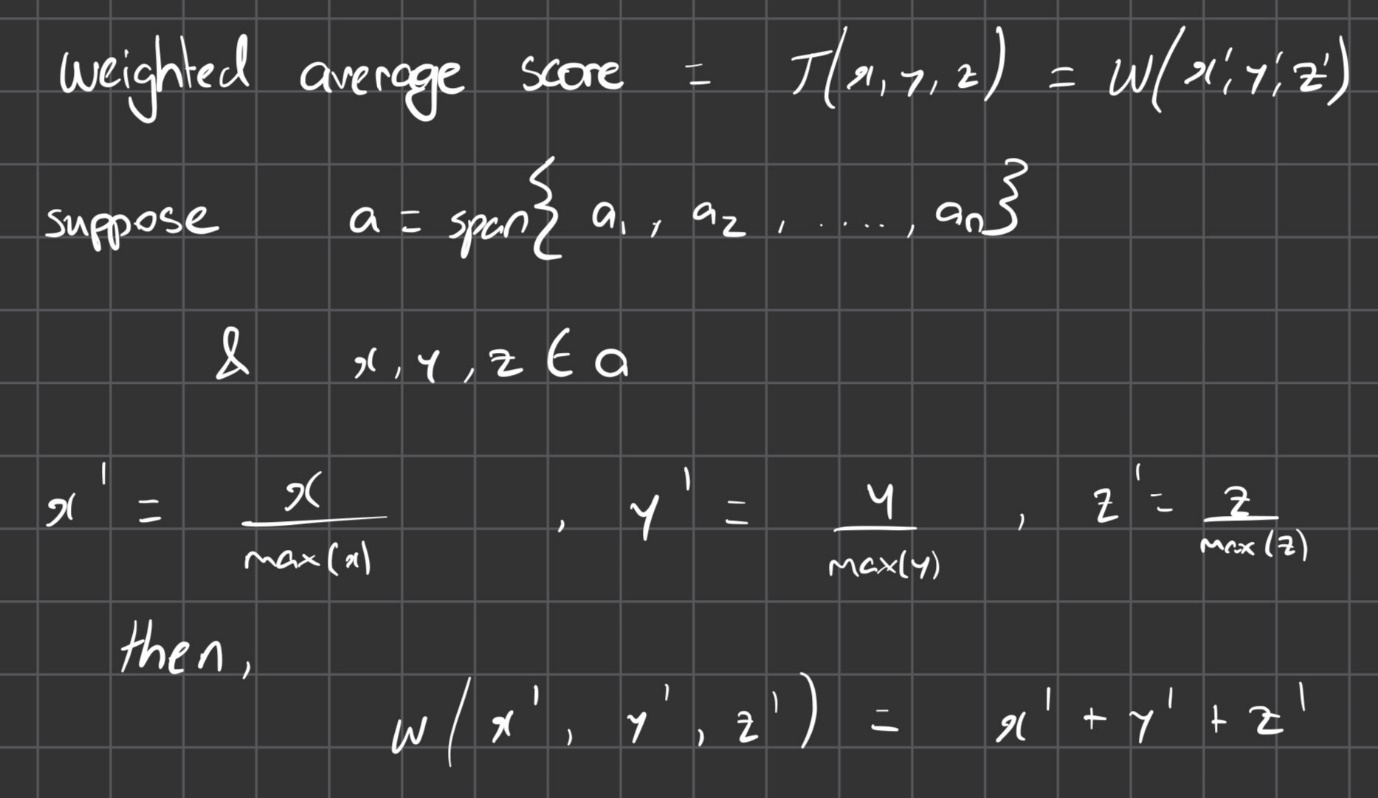 weighted average score = T(x, y, z) = W(x', y', z')
suppose a = span{ a₁, a₂, ....., aₙ}
& x, y, z ∈ a
x' = x / max(x) , y' = y / max(y) , z' = z / max(z)
then,
W(x', y', z') = x' + y' + z'